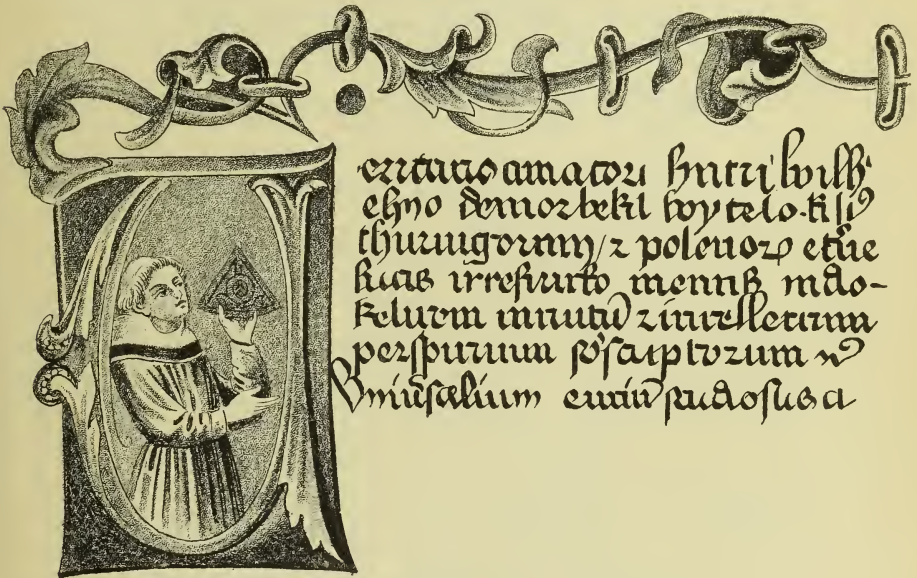 eritatis amatori fratri wilh
elmo de morbeka wytelo filiꝰ
thuringorum / ⁊ polonoꝝ et̄ne
lucis irrefracto mentis radio
felicem intuitū ⁊ intellectum
perspicuum sbscriptorum
Vniūsalium entiū studiosus a